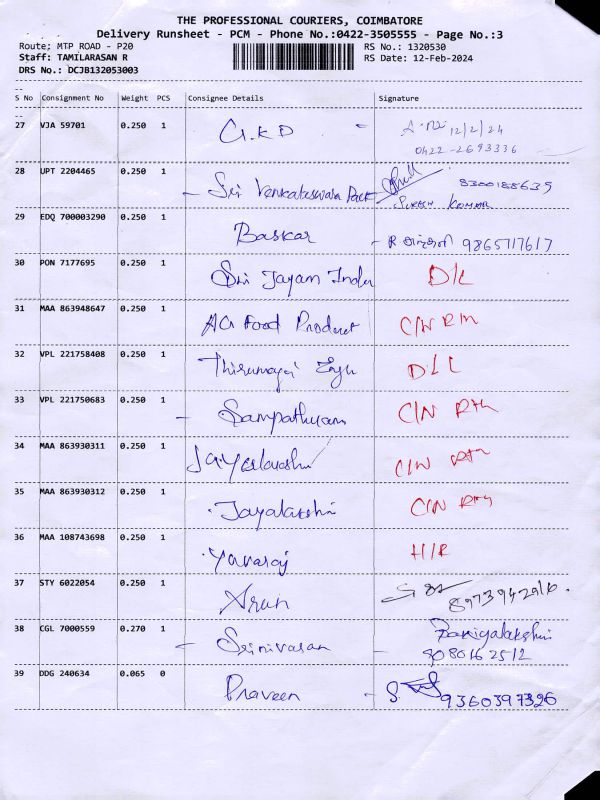 THE PROFESSIONAL COURIERS, COIMBATORE
Delivery Runsheet - PCM - Phone No.:0422-3505555 - Page No.:3
Route; MTP ROAD - P20 RS No.: 1320530
Staff: TAMILARASAN R RS Date: 12-Feb-2024
DRS No.: DCJB132053003
S No Consignment No Weight PCS Consignee Details Signature
27 VJA 59701 0.250 1 G.K D 12/2/24
0422-2693336
28 UPT 2204465 0.250 1 Sri Venkateswala Pack 8300188639
SURESH KUMAR
29 EDQ 700003290 0.250 1 Baskar R 9865717617
30 PON 7177695 0.250 1 Sri Jayam Indu D/L
31 MAA 863948647 0.250 1 AG Food Product C/N
32 VPL 221758408 0.250 1 D.L L
33 VPL 221750683 0.250 1 Sampathuram C/N Rtn
34 MAA 863930311 0.250 1 C/N Rtn
35 MAA 863930312 0.250 1 Jayalakshmi C/N
36 MAA 108743698 0.250 1 Yavaraj H/R
37 STY 6022054 0.250 1 Arun
8973942916
38 CGL 7000559 0.270 1 Srinivasan
8080162512
39 DDG 240634 0.065 0 Praveen 9360397326